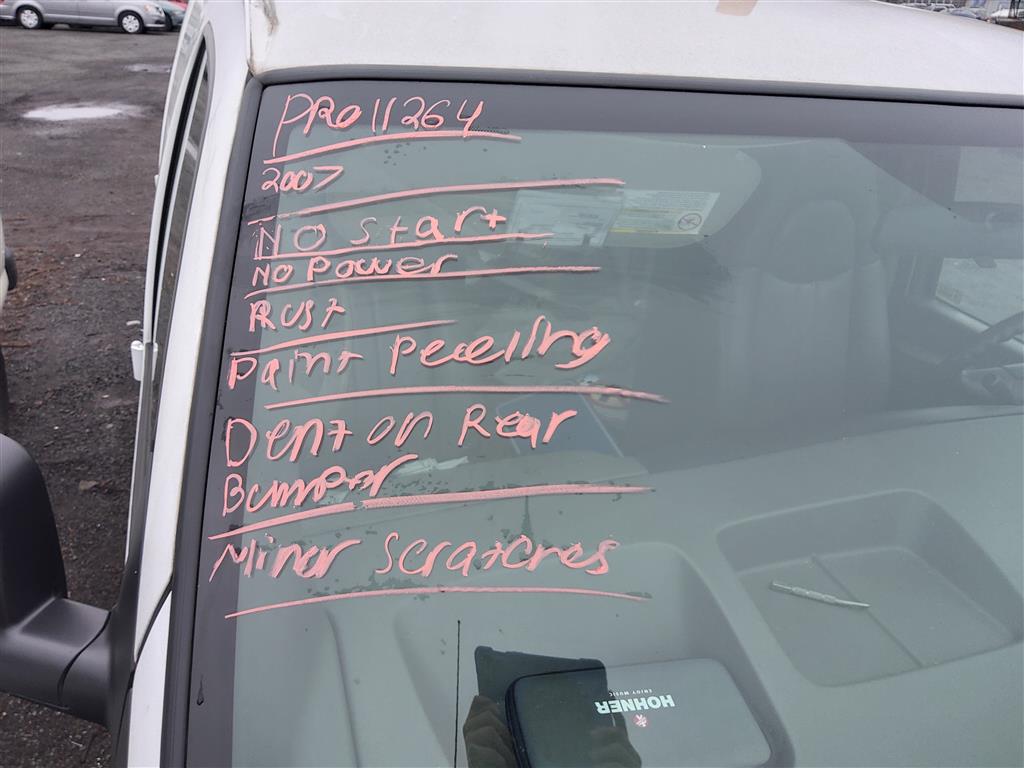 PRO11264
2007
No Start
No Power
Rust
Paint Peeling
Dent on Rear
Bumper
Minor Scratches
HOHNER
ENJOY MUSIC